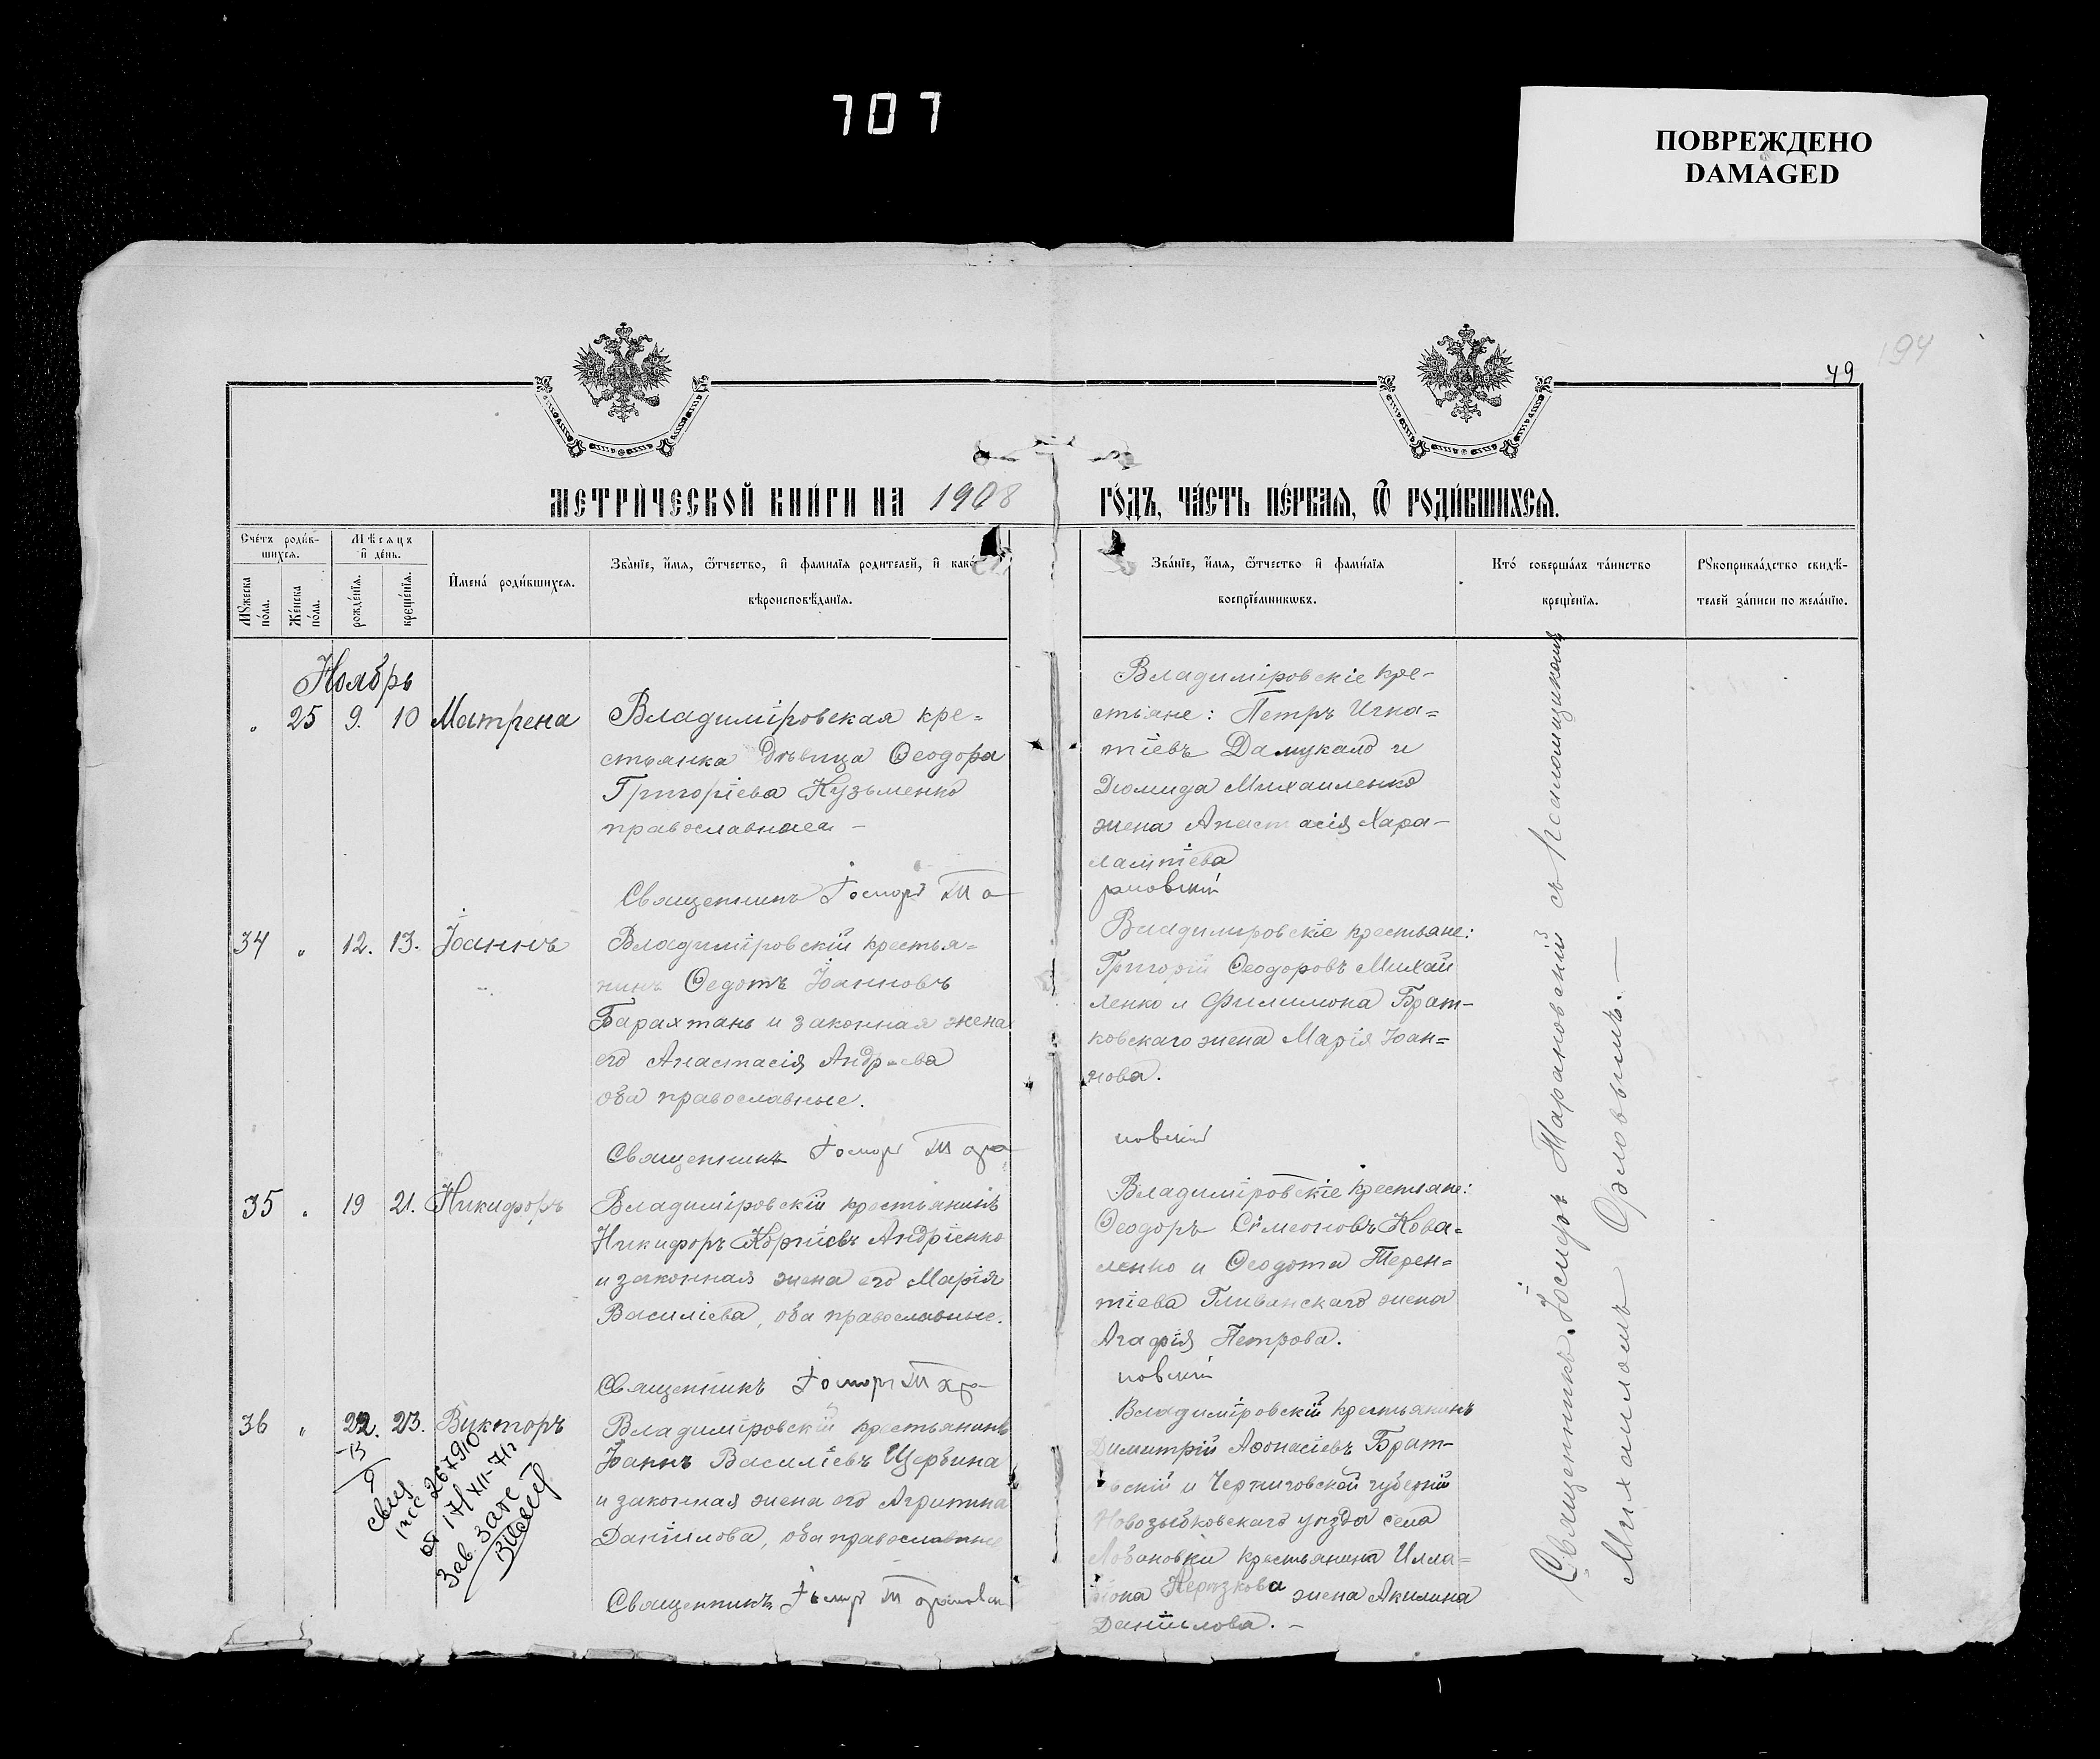 707
ПОВРЕЖДЕНО
DAMAGED
194
79
МЕТРИЧЕСКОЙ КНИГИ НА 1908 ГОДЪ, ЧАСТЬ ПЕРВАЯ, Ѿ РОДИВШИХСЯ.
Счетъ родив-
шихся.
Мѣсяцъ
и день.
Мужеска
пола.
Женска
пола.
рожденїя.
крещенїя.
Имена родившихся.
Званїе, имя, ѿчество, и фамилїя родителей, и како
вѣроисповѣданїя.
Званїе, имя, ѿчество и фамилїя
воспрїемниковъ.
Кто совершалъ таинство
крещенїя.
Рукоприкладство свидѣ-
телей записи по желанїю.
Ноябрь
" 25 9. 10 Матрена
Владиміровская кре=
стьянка дѣвица Ѳеодора
Григоріева Кузьменко
православная –
Священникъ Іосифъ Та
Владиміровскіе кре-
стьяне: Петръ Игна=
тіевъ Дамукало и
Діомида Михаиленко
жена Анастасія Хара-
лампіева
рановскій
34 " 12. 13. Іоаннъ
Владиміровскій крестья=
нинъ Ѳедотъ Іоанновъ
Барахтанъ и законная жена
его Анастасія Андреева
оба православные.
Священникъ Іосифъ Тара
Владиміровскіе крестьяне:
Григорій Ѳеодоровъ Михай
ленко и Филимона Брат-
ковскаго жена Марія Іоан=
нова.
новскій
35 " 19 21. Никифоръ
Владиміровскій крестьянинъ
Никифоръ Андріенко
и законная жена его Марія
Василіева, оба православные.
Священникъ Іосифъ Тара
Владиміровскіе крестьяне:
Ѳеодоръ Сімеоновъ Кова=
ленко и Ѳеодота Терен=
тіева Гливинскаго жена
Агафія Петрова.
новскій
36 " 22. 23. Викторъ
Владиміровскій крестьянинъ
Іоаннъ Василіевъ Щербина
и законная жена его Агрипина
Даніилова, оба православные
Священникъ Іосифъ Тарановск
Владиміровскій крестьянинъ
Димитрій Аѳонасіевъ Брат-
вскій и Черниговской губерніи
Новозыбковскаго уѣзда села
Лобановки крестьянина Илла=
ріона жена Акилина
Даніилова. –
267910
от 17/XII-71г
Зав. Загс
Священникъ Іосифъ Тарановскій съ Псаломщикомъ
Михаиломъ Орловымъ. —